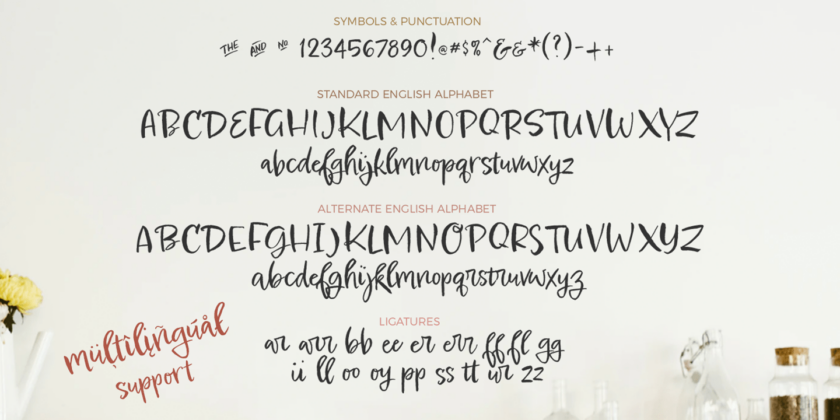 SYMBOLS & PUNCTUATION
THE AND NO 1234567890!@#$%^&&*(?)-++
STANDARD ENGLISH ALPHABET
ABCDEFGHIJKLMNOPQRSTUVWXYZ
abcdefghijklmnopqrstuvwxyz
ALTERNATE ENGLISH ALPHABET
ABCDEFGHIJKLMNOPQRSTUVWXYZ
abcdefghijklmnopqrstuvwxyz
LIGATURES
ar arr bb ee er err ff fl gg
ii ll oo oy pp ss tt ur zz
support